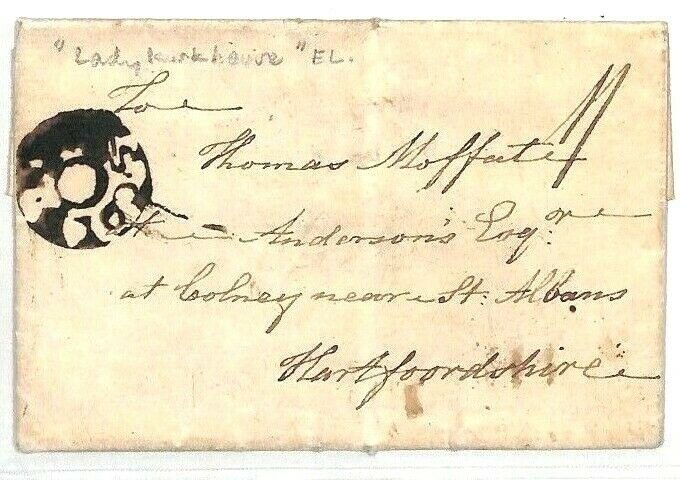 "Ladykirkhouse" EL.
To
Thomas Moffate
the Anderson's Esqre
at Colney near St: Albans
Hartfoordshire